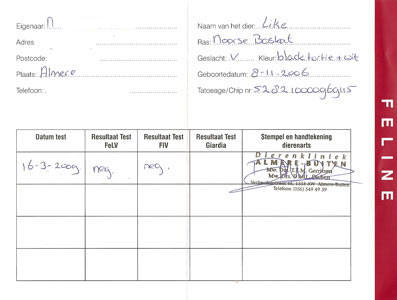 Eigenaar: N
Naam van het dier: Like
Adres
Ras: Noorse Boskat
Postcode:
Geslacht: V Kleur: blacktortie + wit
Plaats: Almere
Geboortedatum: 8-11-2006
Telefoon:
Tatoeage/Chip nr
Datum test
Resultaat Test FeLV
Resultaat Test FIV
Resultaat Test Giardia
Stempel en handtekening dierenarts
16-3-2009 neg. neg.
Dierenkliniek
ALMERE-BUITEN
Mw. Drs. Gerritsen
Mw. Drs.
Almere Buiten
Telefoon: (036) 549 49 39
FELINE